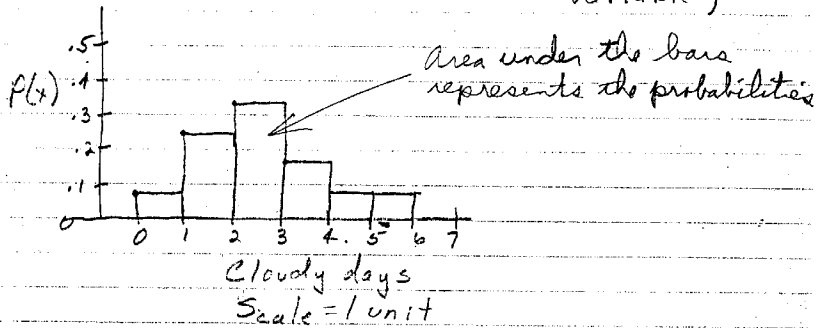 variable)
.5
.4
P(x)
.3
.2
.1
0
area under the bars
represents the probabilities
0 1 2 3 4 5 6 7
Cloudy days
Scale = 1 unit